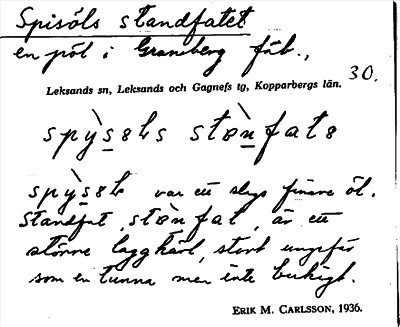 Spisöls standfatet
en pöl i Graneberg fäb.,
30.
Leksands sn, Leksands och Gagnefs tg, Kopparbergs län.
spỳsøls stønfatə
spỳsøl var ett slags finare öl.
Standfat, stønfat, är ett
större laggkärl, stort ungefär
som en tunna men inte bukigt.
ERIK M. CARLSSON, 1936.